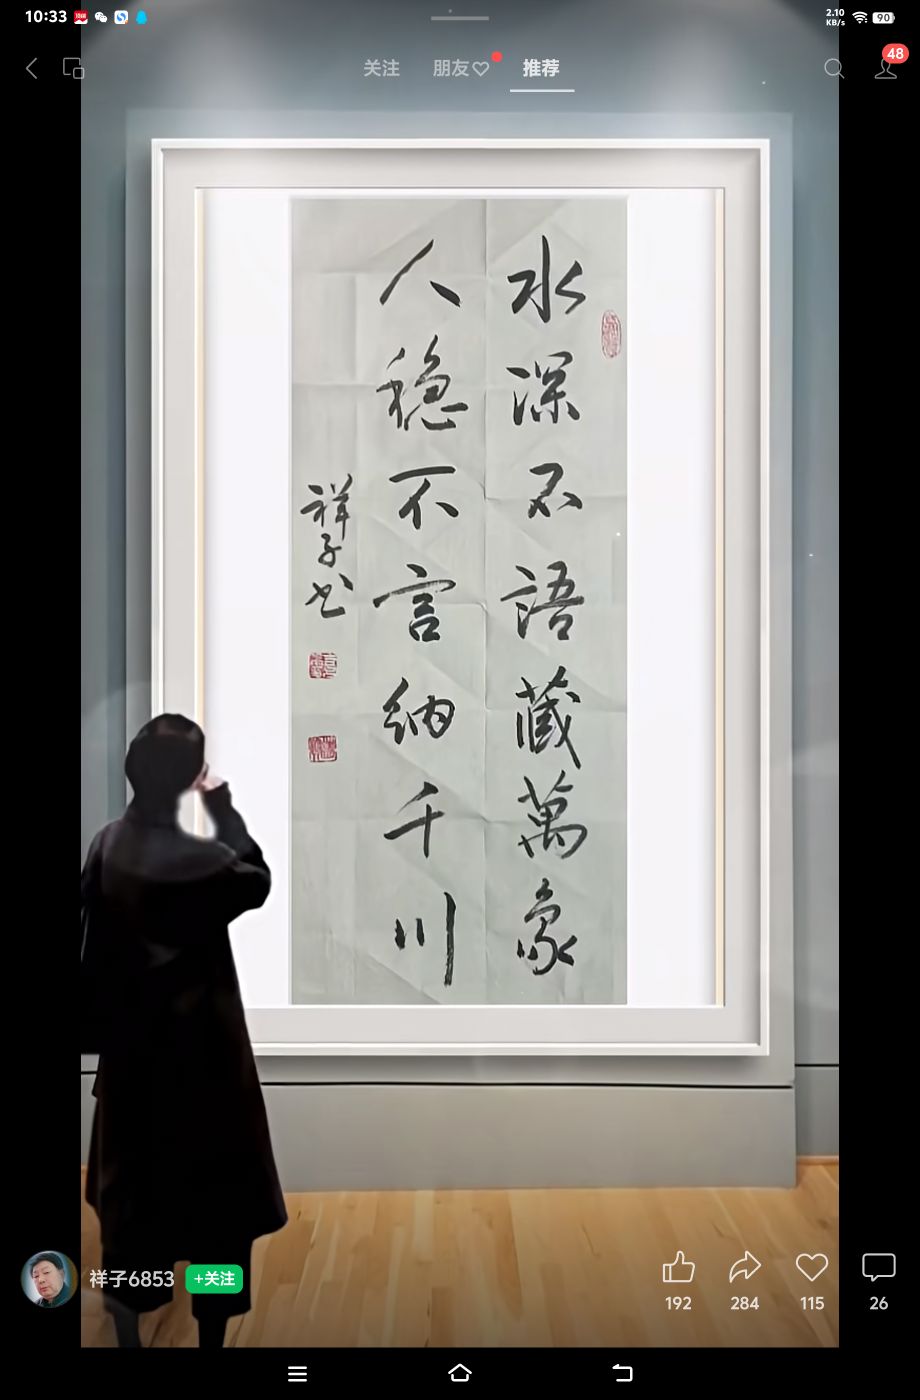 10:33
2.10
KB/s
90
关注
朋友
推荐
48
水深不語藏萬象
人稳不言纳千川
祥子书
祥子6853
+关注
192
284
115
26